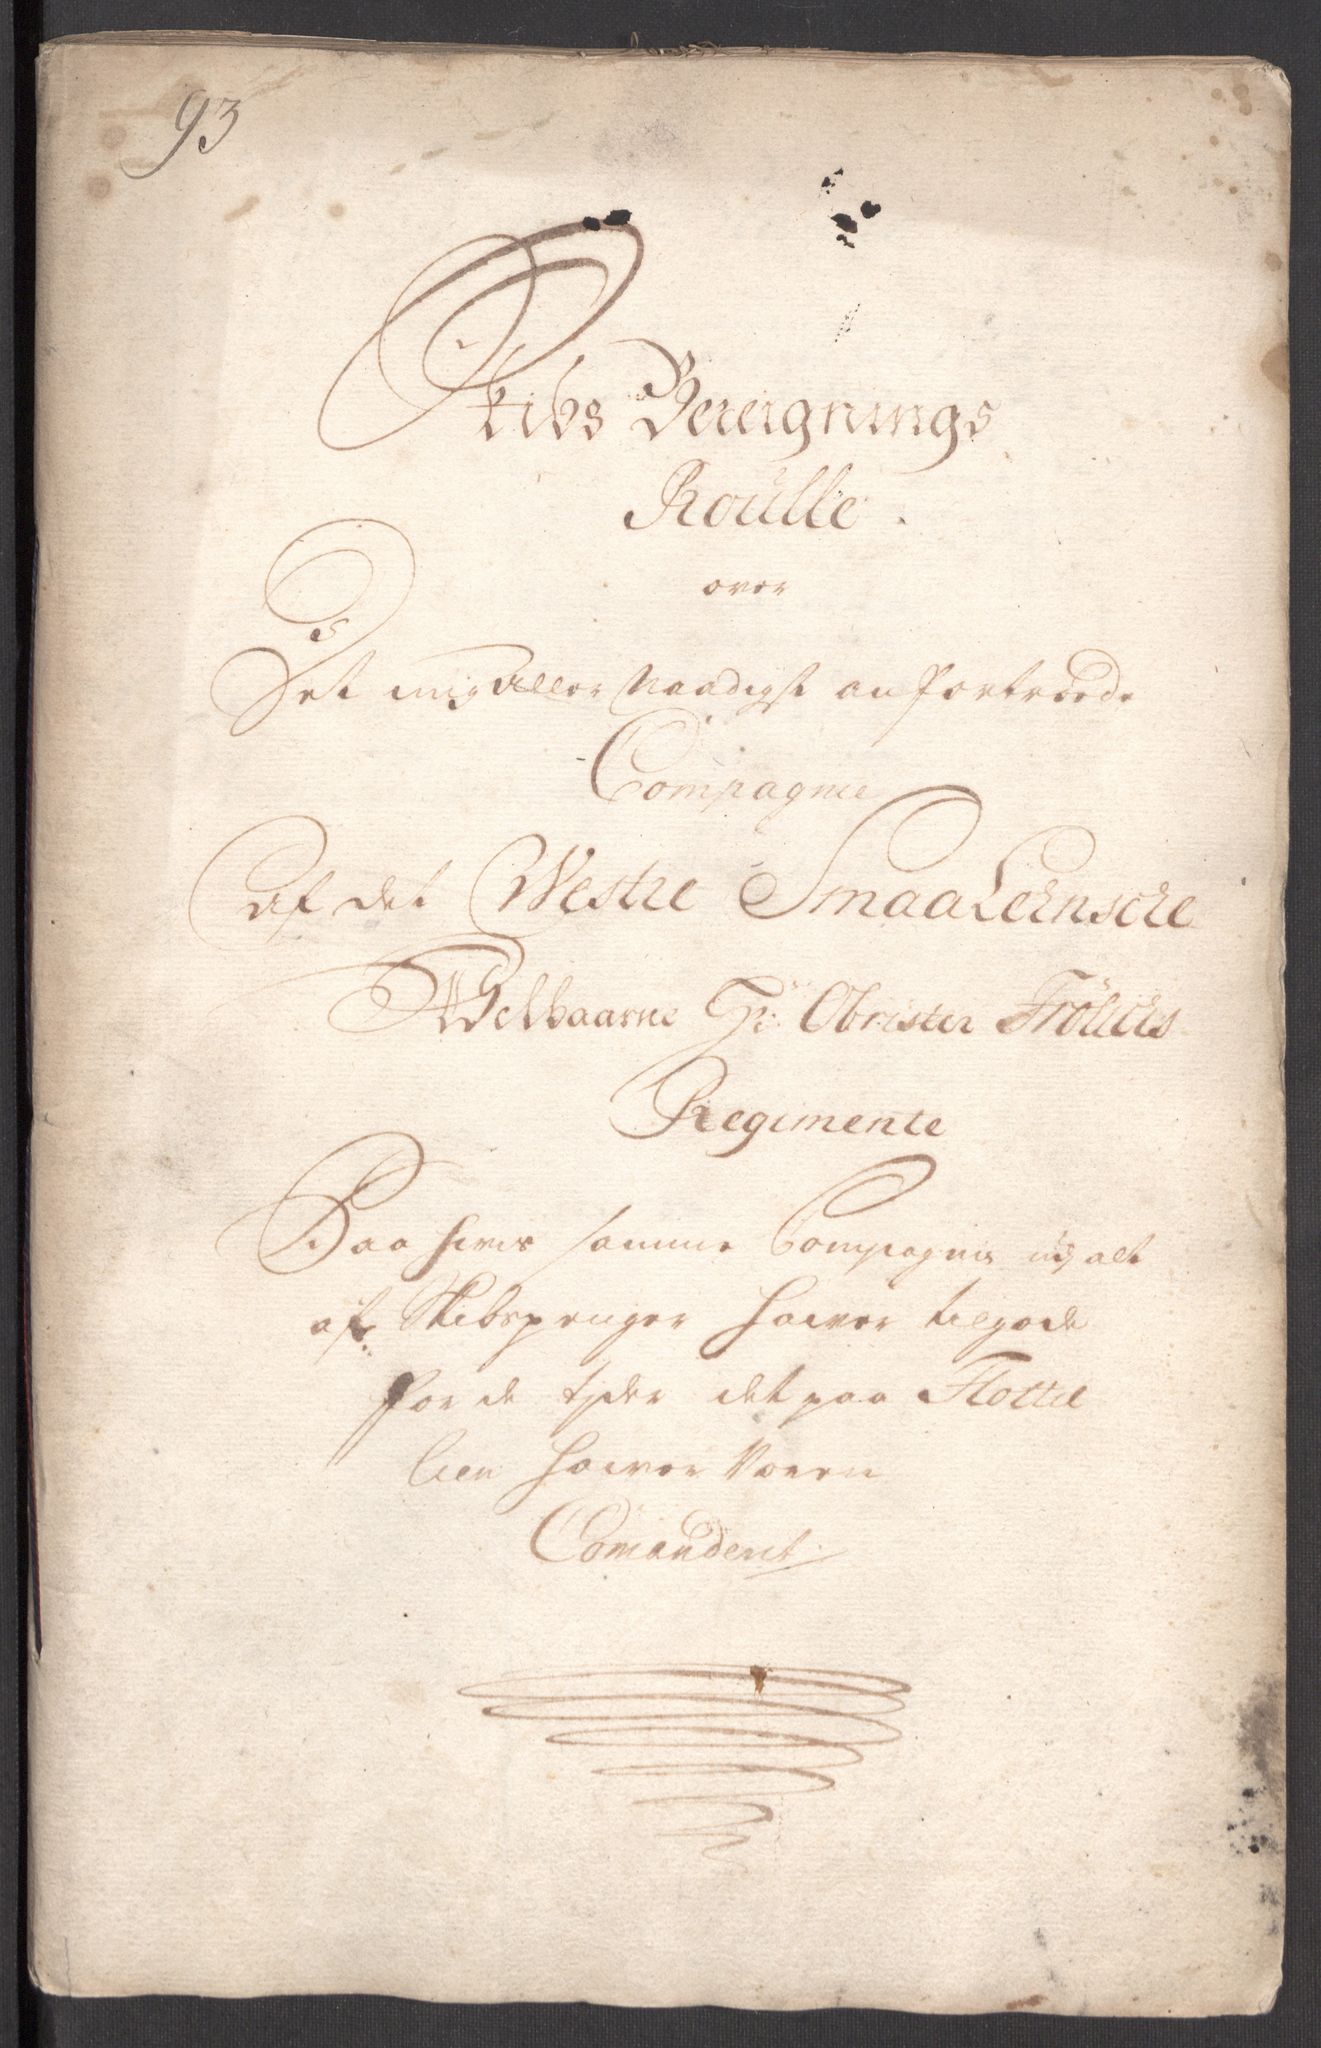 93
Skibs Bereignings
Roulle.
over
Det mig Aller Naadigst an fortroede
Compagnie
Af det Westre SmaaLehnsche
Welbaarne Hr: Obrister Frölichs
Regimente
Paa hvis samme Compagnie udj alt
af Skibspenger hawer tilgode
for de tjder det paa Flottil
lien hawer Veren
Comanderit